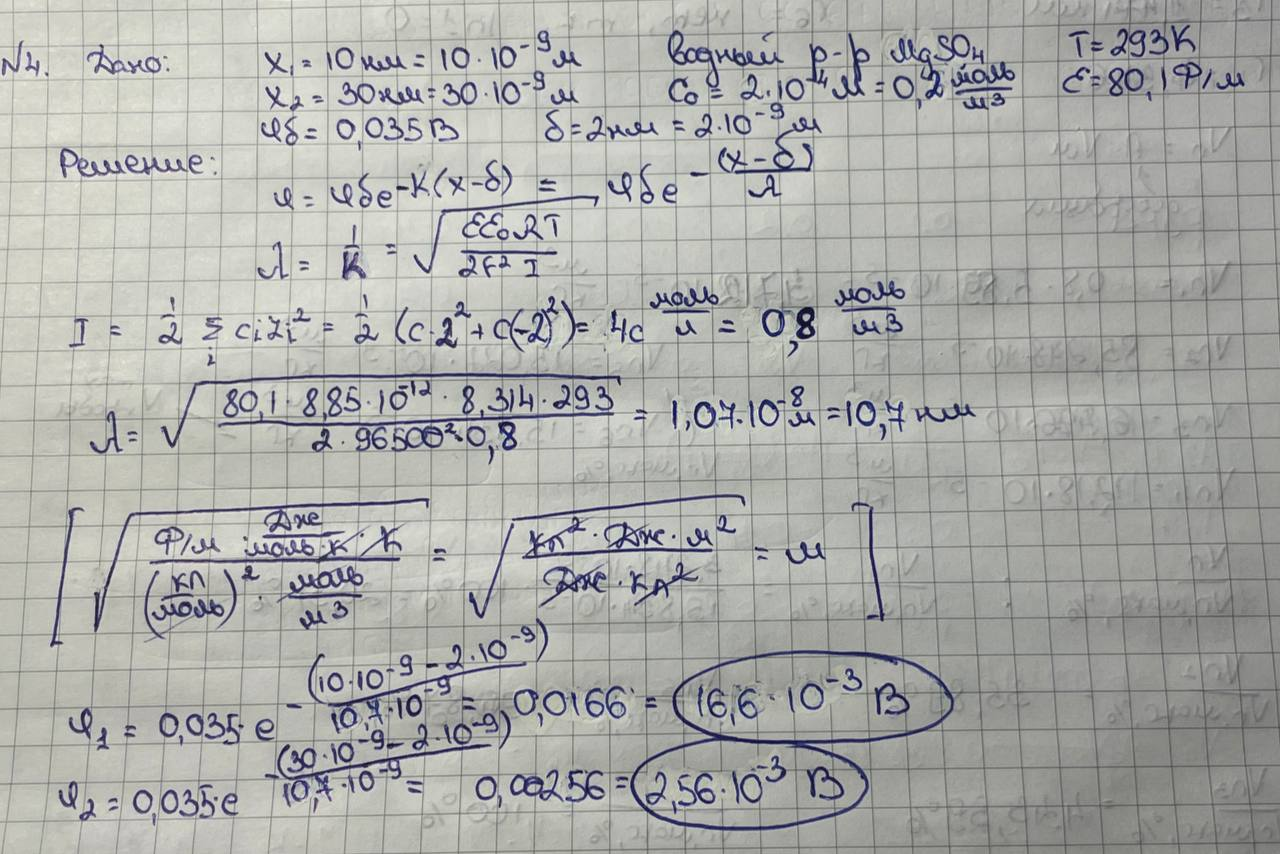 №4. Дано: x₁ = 10 нм = 10·10⁻⁹ м водный р-р MgSO₄ T = 293 К
x₂ = 30 нм = 30·10⁻⁹ м C₀ = 2·10⁻⁴ М = 0,2 моль/м3 ε = 80,1 Ф/м
φδ = 0,035 В δ = 2 нм = 2·10⁻⁹ м
Решение:
φ = φδe^(-K(x-δ)) = φδe^(-(x-δ)/λ)
λ = 1/K = √(εε₀RT/(2F² I))
I = 1/2 Σᵢ cᵢzᵢ² = 1/2 (c·2² + c(-2)²) = 4c моль/л = 0,8 моль/м3
λ = √((80,1·8,85·10⁻¹²·8,314·293)/(2·96500²·0,8)) = 1,07·10⁻⁸ м = 10,7 нм
[√((Ф/м · Дж/(моль·К) · К)/((Кл/моль)² · моль/м3)) = √((Кл²·Дж·м²)/(Дж·Кл²)) = м]
φ₁ = 0,035·e^(-(10·10⁻⁹ - 2·10⁻⁹)/(10,7·10⁻⁹)) = 0,0166 = 16,6·10⁻³ В
φ₂ = 0,035·e^(-(30·10⁻⁹ - 2·10⁻⁹)/(10,7·10⁻⁹)) = 0,00256 = 2,56·10⁻³ В